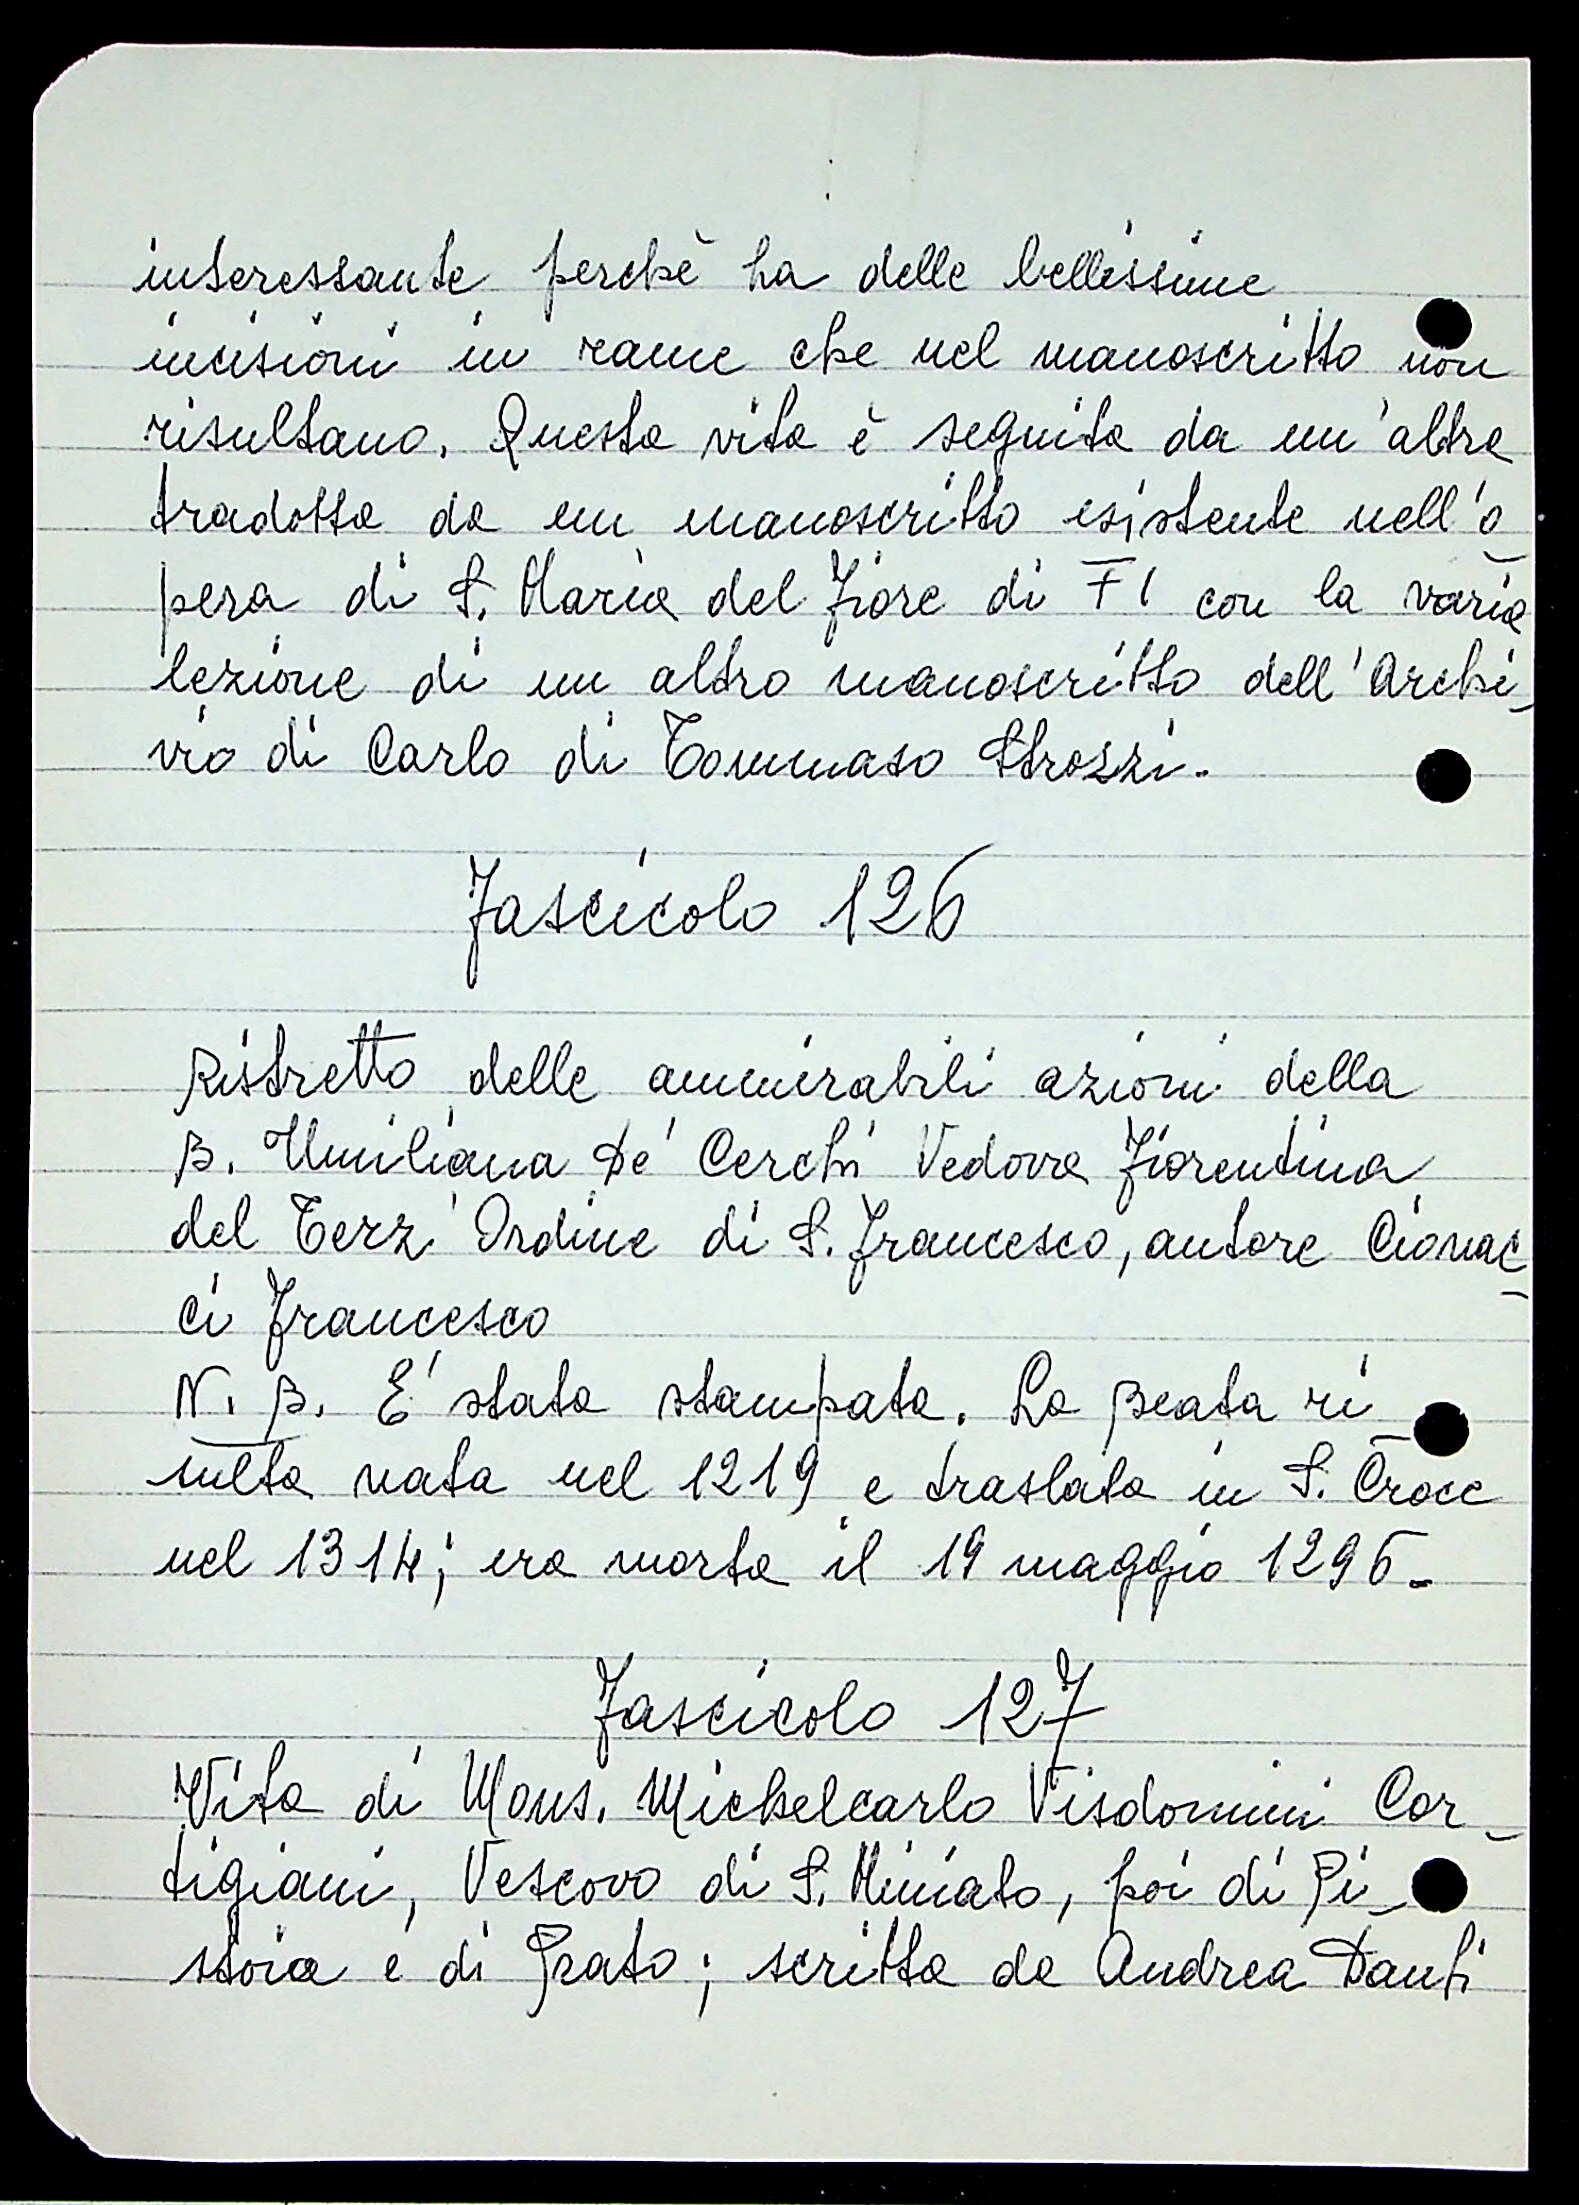 interessante perchè ha delle bellissime
incisioni in rame che nel manoscritto non
risultano. Questa vita è seguita da un'altra
tradotta da un manoscritto esistente nell'o_
pera di S. Maria del Fiore di FI con la varia
lezione di un altro manoscritto dell'Archi_
vio di Carlo di Tommaso Strozzi.
Fascicolo 126
Ristretto delle ammirabili azioni della
B. Umiliana De' Cerchi Vedova Fiorentina
del Terz'Ordine di S. Francesco, autore Cionac_
ci Francesco
N. B. E' stata stampata. La Beata ri_
sulta nata nel 1219 e traslata in S. Croce
nel 1314; era morta il 19 maggio 1296.
Fascicolo 127
Vita di Mons. Michelcarlo Visdomini Cor_
tigiani, Vescovo di S. Miniato, poi di Pi_
stoia e di Prato; scritta da Andrea Danti